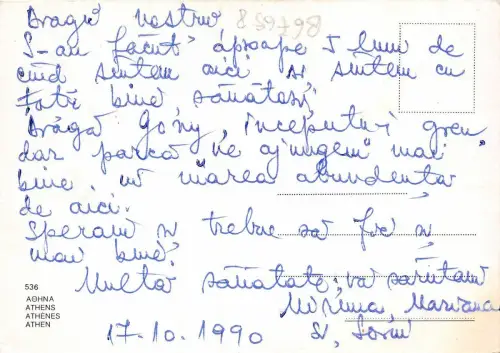 Dragii noștrii
867658
S-au făcut aproape 5 luni de
cînd sîntem aici și sîntem cu
toții bine, sănătoși.
Dragă Gony, începutu-i greu
dar parcă ne ajungem mai
bine, în marea abundența
de aici.
Sperăm și trebuie să fie și
mai bine.
Multă sănătate, vă sărutăm
Mariana
Și, Sorin
17.10.1990
536
ΑΘΗΝΑ
ATHENS
ATHÈNES
ATHEN